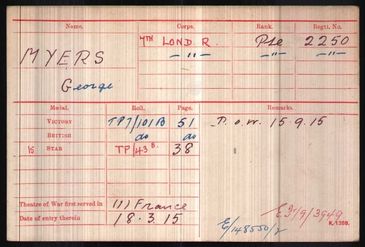 Name. Corps. Rank. Regtl. No.
MYERS 7TH LOND. R. Pte 2250
George — " — — " — — " —
Medal. Roll. Page. Remarks.
VICTORY TP7/101B 51 P.o.W. 15.9.15
BRITISH do do
15 STAR TP/43B. 38
Theatre of War first served in (1) France
Date of entry therein 18.3.15
K. 1380.